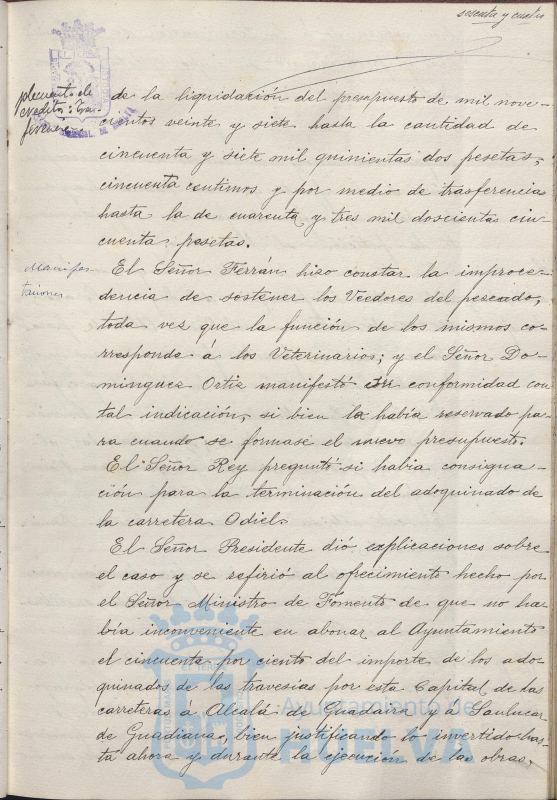 sesenta y cuatro
plemento de
creditos: Tras-
ferencia
de la liquidación del presupuesto de mil nove-
cientos veinte y siete hasta la cantidad de
cincuenta y siete mil quinientas dos pesetas,
cincuenta centimos y por medio de trasferencia
hasta la de cuarenta y tres mil doscientas cin-
cuenta pesetas.
Manifes-
taciones
El Señor Ferrán hizo constar la improce-
dencia de sostener los Veedores del pescado,
toda vez que la función de los mismos co-
rresponde á los Veterinarios; y el Señor Do-
minguez Ortiz manifestó su conformidad con
tal indicación, si bien la había reservado pa-
ra cuando se formase el nuevo presupuesto.
El Señor Rey preguntó si había consigna-
ción para la terminación del adoquinado de
la carretera Odiel.
El Señor Presidente dió explicaciones sobre
el caso y se refirió al ofrecimiento hecho por
el Señor Ministro de Fomento de que no ha-
bía inconveniente en abonar al Ayuntamiento
el cincuenta por ciento del importe de los ado-
quinados de las travesías por esta Capital de las
carreteras á Alcalá de Guadaira y á Sanlucar
de Guadiana, bien justificando lo invertido has-
ta ahora y durante la ejecución de las obras,
Ayuntamiento de
HUELVA